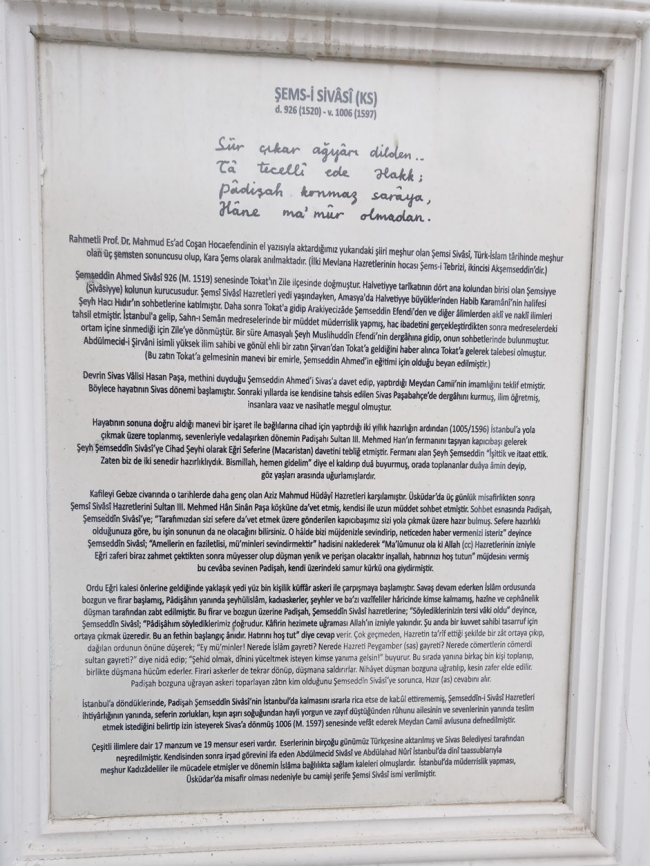 ŞEMS-İ SİVÂSÎ (KS)
d. 926 (1520) - v. 1006 (1597)
Sür çıkar ağyârı dilden..
Tâ tecellî ede Hakk;
Pâdişah konmaz sarâya,
Hâne ma'mûr olmadan.
Rahmetli Prof. Dr. Mahmud Es'ad Coşan Hocaefendinin el yazısıyla aktardığımız yukarıdaki şiiri meşhur olan Şemsi Sivâsî, Türk-İslam târihinde meşhur
olan üç şemsten sonuncusu olup, Kara Şems olarak anılmaktadır. (İlki Mevlana Hazretlerinin hocası Şems-i Tebrizi, ikincisi Akşemseddin'dir.)
Şemseddin Ahmed Sivâsî 926 (M. 1519) senesinde Tokat'ın Zile ilçesinde doğmuştur. Halvetiyye tarîkatının dört ana kolundan birisi olan Şemsiyye
(Sivâsiyye) kolunun kurucusudur. Şemsî Sivâsî Hazretleri yedi yaşındayken, Amasya'da Halvetiyye büyüklerinden Habib Karamânî'nin halifesi
Şeyh Hacı Hıdır'ın sohbetlerine katılmıştır. Daha sonra Tokat'a gidip Arakiyecizâde Şemseddin Efendi'den ve diğer âlimlerden aklî ve naklî ilimleri
tahsil etmiştir. İstanbul'a gelip, Sahn-ı Semân medreselerinde bir müddet müderrislik yapmış, hac ibadetini gerçekleştirdikten sonra medreselerdeki
ortam içine sinmediği için Zile'ye dönmüştür. Bir süre Amasyalı Şeyh Muslihuddîn Efendi'nin dergâhına gidip, onun sohbetlerinde bulunmuştur.
Abdülmecid-i Şirvânî isimli yüksek ilim sahibi ve gönül ehli bir zatın Şirvan'dan Tokat'a geldiğini haber alınca Tokat'a gelerek talebesi olmuştur.
(Bu zatın Tokat'a gelmesinin manevi bir emirle, Şemseddin Ahmed'in eğitimi için olduğu beyan edilmiştir.)
Devrin Sivas Vâlisi Hasan Paşa, methini duyduğu Şemseddin Ahmed'i Sivas'a davet edip, yaptırdığı Meydan Camii'nin imamlığını teklif etmiştir.
Böylece hayatının Sivas dönemi başlamıştır. Sonraki yıllarda ise kendisine tahsis edilen Sivas Paşabahçe'de dergâhını kurmuş, ilim öğretmiş,
insanlara vaaz ve nasihatle meşgul olmuştur.
Hayatının sonuna doğru aldığı manevi bir işaret ile bağlılarına cihad için yaptırdığı iki yıllık hazırlığın ardından (1005/1596) İstanbul'a yola
çıkmak üzere toplanmış, sevenleriyle vedalaşırken dönemin Padişahı Sultan III. Mehmed Han'ın fermanını taşıyan kapıcıbaşı gelerek
Şeyh Şemseddîn Sivâsî'ye Cihad Şeyhi olarak Eğri Seferine (Macaristan) davetini tebliğ etmiştir. Fermanı alan Şeyh Şemseddin "İşittik ve itaat ettik.
Zaten biz de iki senedir hazırlıklıydık. Bismillah, hemen gidelim" diye el kaldırıp duâ buyurmuş, orada toplananlar duâya âmin deyip,
göz yaşları arasında uğurlamışlardır.
Kafileyi Gebze civarında o tarihlerde daha genç olan Aziz Mahmud Hüdâyî Hazretleri karşılamıştır. Üsküdar'da üç günlük misafirlikten sonra
Şemsî Sivâsî Hazretlerini Sultan III. Mehmed Hân Sinân Paşa köşküne da'vet etmiş, kendisi ile uzun müddet sohbet etmiştir. Sohbet esnasında Padişah,
Şemseddîn Sivâsî'ye; "Tarafımızdan sizi sefere da'vet etmek üzere gönderilen kapıcıbaşımız sizi yola çıkmak üzere hazır bulmuş. Sefere hazırlıklı
olduğunuza göre, bu işin sonunun da ne olacağını bilirsiniz. O hâlde bizi müjdenizle sevindirip, neticeden haber vermenizi isteriz" deyince
Şemseddîn Sivâsî; "Amellerin en fazîletlisi, mü'minleri sevindirmektir" hadisini naklederek "Ma'lûmunuz ola ki Allah (cc) Hazretlerinin izniyle
Eğri zaferi biraz zahmet çektikten sonra müyesser olup düşman yenik ve perişan olacaktır inşallah, hatırınızı hoş tutun" müjdesini vermiş
bu cevâba sevinen Padişah, kendi üzerindeki samur kürkü ona giydirmiştir.
Ordu Eğri kalesi önlerine geldiğinde yaklaşık yedi yüz bin kişilik küffâr askeri ile çarpışmaya başlamıştır. Savaş devam ederken İslâm ordusunda
bozgun ve firar başlamış, Pâdişâhın yanında şeyhülislâm, kadıaskerler, şeyhler ve ba'zı vazîfeliler hâricinde kimse kalmamış, hazîne ve cephânelik
düşman tarafından zabt edilmiştir. Bu firar ve bozgun üzerine Padişah, Şemseddîn Sivâsî hazretlerine; "Söylediklerinizin tersi vâki oldu" deyince,
Şemseddîn Sivâsî; "Pâdişâhım söylediklerimiz doğrudur. Kâfirin hezimete uğraması Allah'ın izniyle yakındır. Şu anda bir kuvvet sahibi tasarruf için
ortaya çıkmak üzeredir. Bu an fethin başlangıç ânıdır. Hatırını hoş tut" diye cevap verir. Çok geçmeden, Hazretin ta'rîf ettiği şekilde bir zât ortaya çıkıp,
dağılan ordunun önüne düşerek; "Ey mü'minler! Nerede İslâm gayreti? Nerede Hazreti Peygamber (sas) gayreti? Nerede cömertlerin cömerdi
sultan gayreti?" diye nidâ edip; "Şehid olmak, dînini yüceltmek isteyen kimse yanıma gelsin!" buyurur. Bu sırada yanına birkaç bin kişi toplanıp,
birlikte düşmana hücûm ederler. Firari askerler de tekrar dönüp, düşmana saldırırlar. Nihâyet düşman bozguna uğratılıp, kesin zafer elde edilir.
Padişah bozguna uğrayan askeri toparlayan zâtın kim olduğunu Şemseddîn Sivâsî'ye sorunca, Hızır (as) cevabını alır.
İstanbul'a döndüklerinde, Padişah Şemseddîn Sivâsî'nin İstanbul'da kalmasını ısrarla rica etse de kabûl ettirememiş, Şemseddîn-i Sivâsî Hazretleri
ihtiyârlığının yanında, seferin zorlukları, kışın aşırı soğuğundan hayli yorgun ve zayıf düştüğünden rûhunu ailesinin ve sevenlerinin yanında teslim
etmek istediğini belirtip izin isteyerek Sivas'a dönmüş 1006 (M. 1597) senesinde vefât ederek Meydan Camii avlusuna defnedilmiştir.
Çeşitli ilimlere dair 17 manzum ve 19 mensur eseri vardır. Eserlerinin birçoğu günümüz Türkçesine aktarılmış ve Sivas Belediyesi tarafından
neşredilmiştir. Kendisinden sonra irşad görevini ifa eden Abdülmecid Sivâsî ve Abdülahad Nûrî İstanbul'da dinî taassublarıyla
meşhur Kadızâdeliler ile mücadele etmişler ve dönemin İslâma bağlılıkta sağlam kaleleri olmuşlardır. İstanbul'da müderrislik yapması,
Üsküdar'da misafir olması nedeniyle bu camîi şerîfe Şemsi Sivâsî ismi verilmiştir.